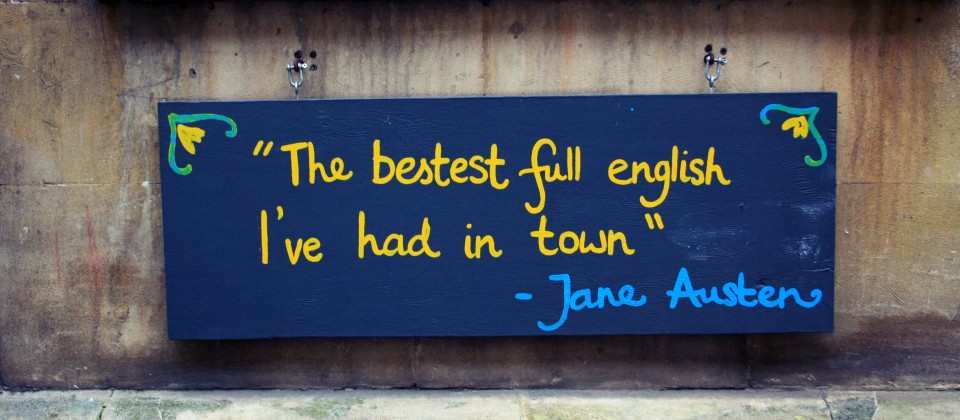 "The bestest full english
I've had in town"
- Jane Austen